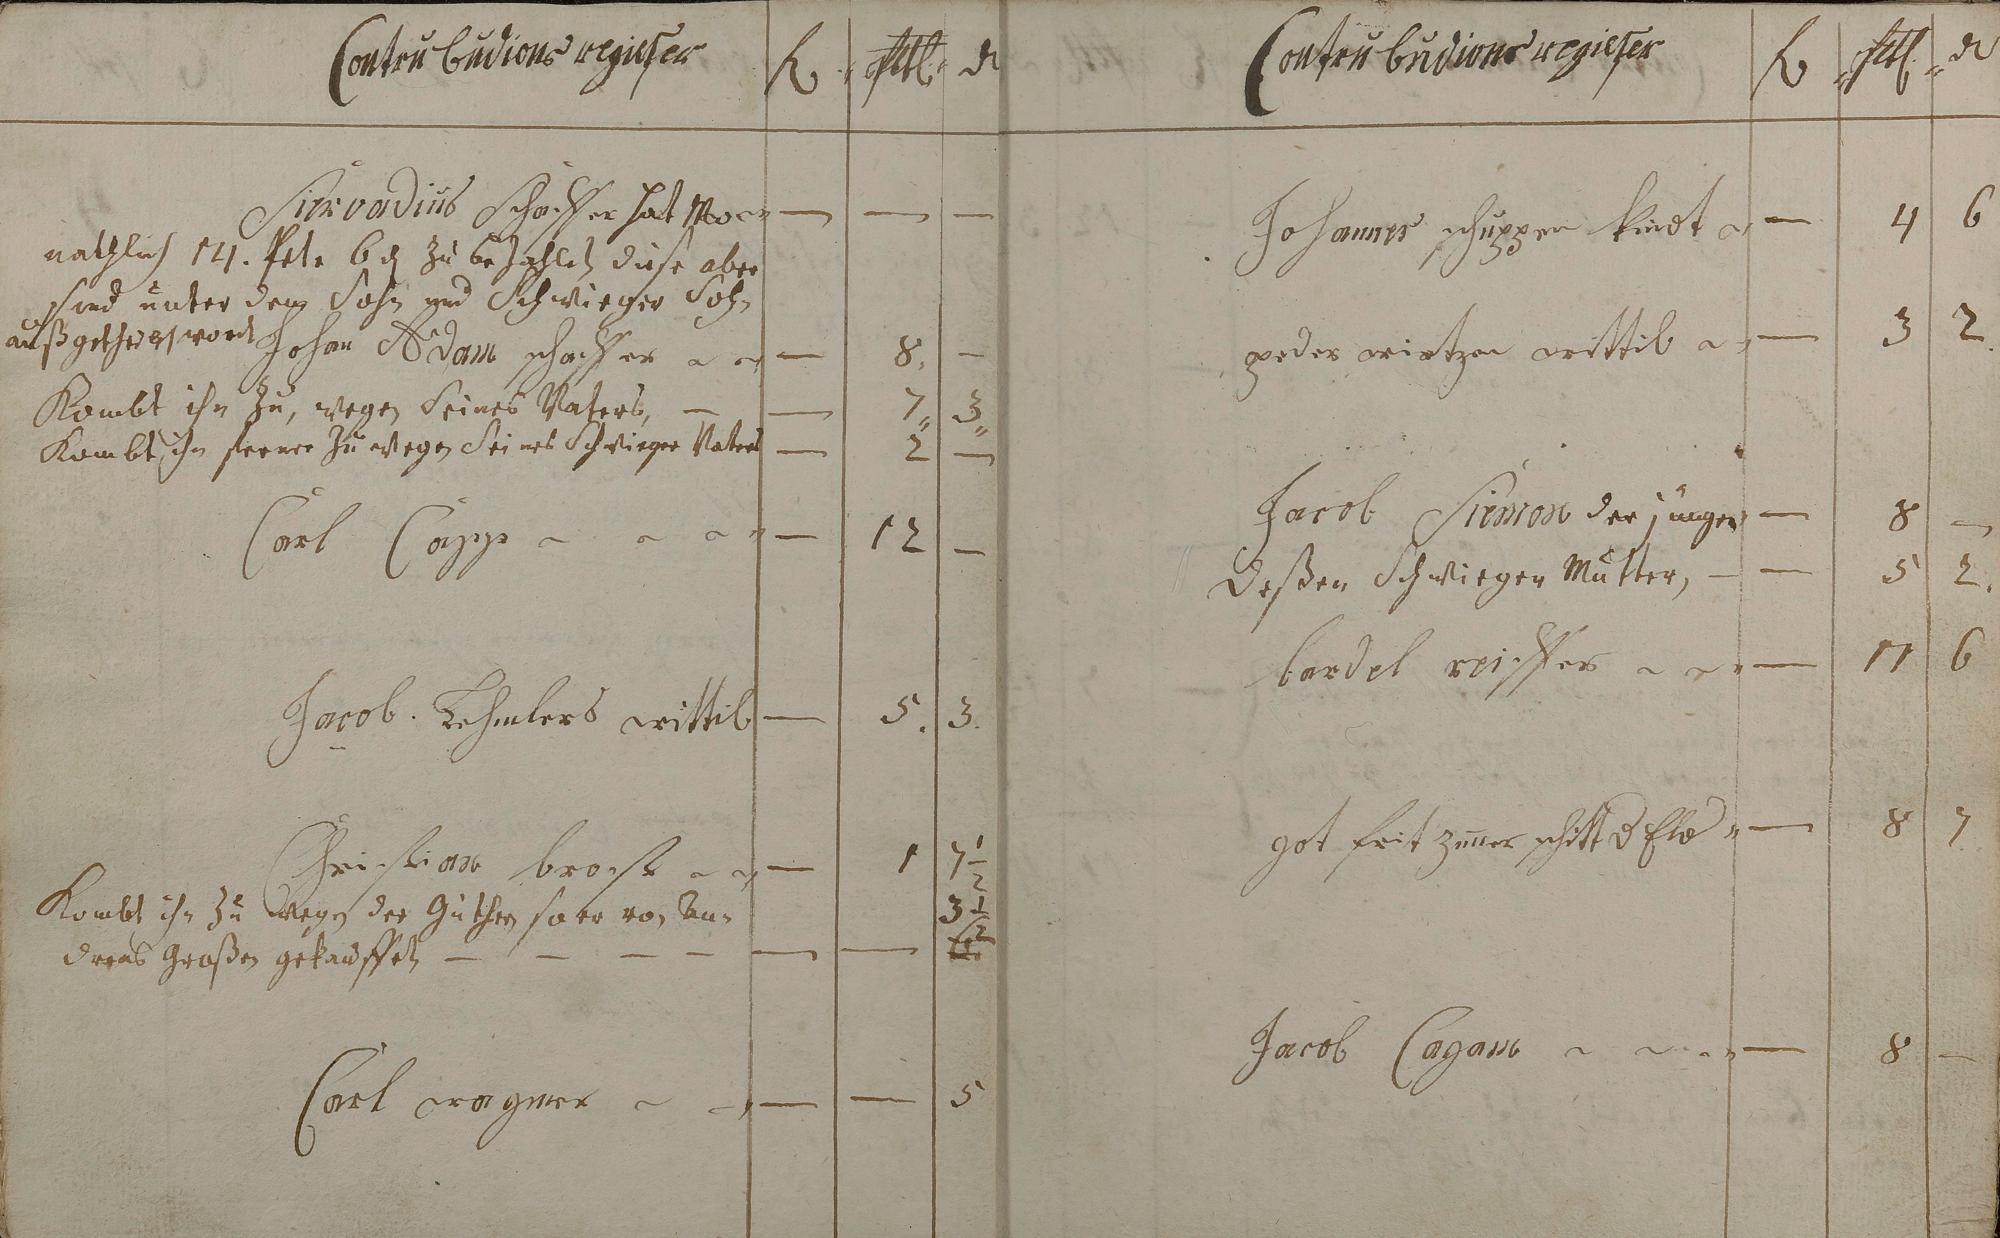 Contrubudions regiester fl. ptl. d
Siervadius Schaffer hat Mo= — — —
nathlich 14. Pet. 6 d Zu bezahlen diese aber
sind unter dem Sohn und Schwieger Sohn
außgetheilet worden Johan Adam schaffer — 8. —
Kombt ihn Zu, wegen Seines Vaters, — — 7 3
Kombt ihn ferner Zu wegen Seines Schwieger Vaters — 2 —
Carl Capp — 12 —
Jacob Lehmlers wittib — 5. 3.
Christian brost — 1 7 1/2
Kombt ihn Zu wegen der Güther so er von An=
dreas Großen gekauffet — — — — — — 3 1/2
Carl wagner — — 5
Contrubudions regiester fl. ptl. d
Johannes schuppen kindt — 4 6
peder wirtzen wittib — 3 2.
Jacob Siemon der jünger — 8 —
Deßen Schwieger Mutter, — — 5 2.
bardel reiffer — 11 6
got frit — 8 7
Jacob Cagam — 8 —